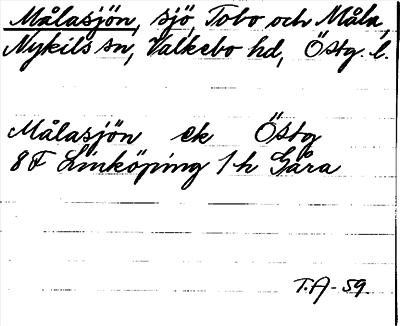 Målasjön, sjö, Tobo och Måla,
Nykils sn, Valkebo hd, Östg. l.
Målasjön ek Östg
8F Linköping 1h Gåra
T.A-59